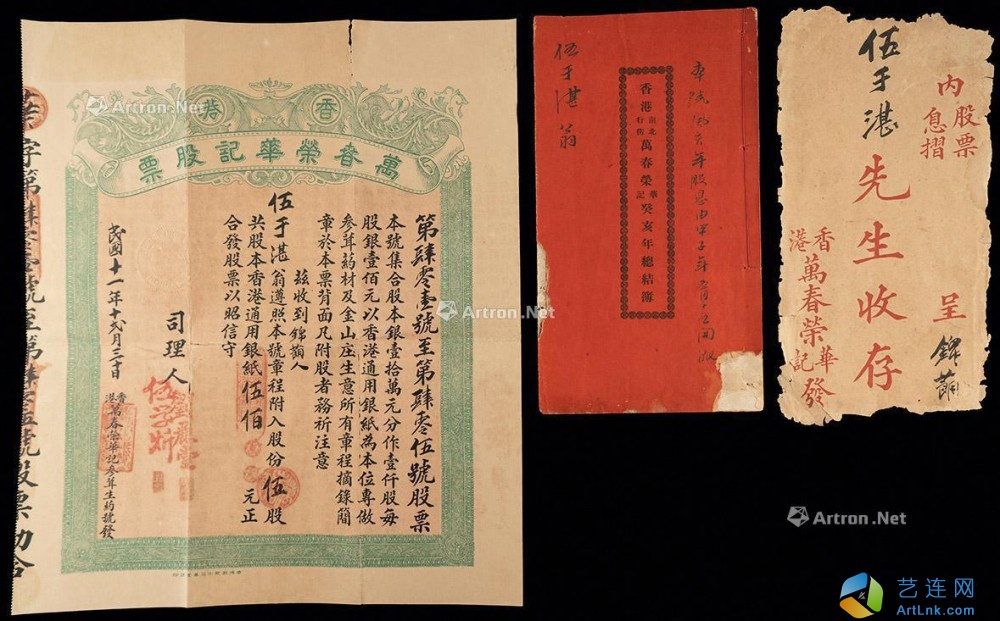 香港
萬春榮華記股票
第肆零壹號至第肆零伍號股票
本號集合股本銀壹拾萬元分作壹仟股每
股銀壹佰元以香港通用銀紙為本位專做
參茸葯材及金山庄生意所有章程摘錄簡
章於本票背面凡附股者務祈注意
茲收到錦蘭人
伍于湛翁遵照本號章程附入股份伍股
共股本香港通用銀紙伍佰元正
合發股票以昭信守
司理人
民國十一年十弍月三十日
香港萬春榮華記參茸生葯號發
伍于湛翁
香港南北行街萬春榮華記癸亥年總結簿
內股票息摺
伍于湛先生收存
呈
香港萬春榮華記發
Artron.Net
Artron.Net
Artron.Net
艺连网
ArtLnk.com